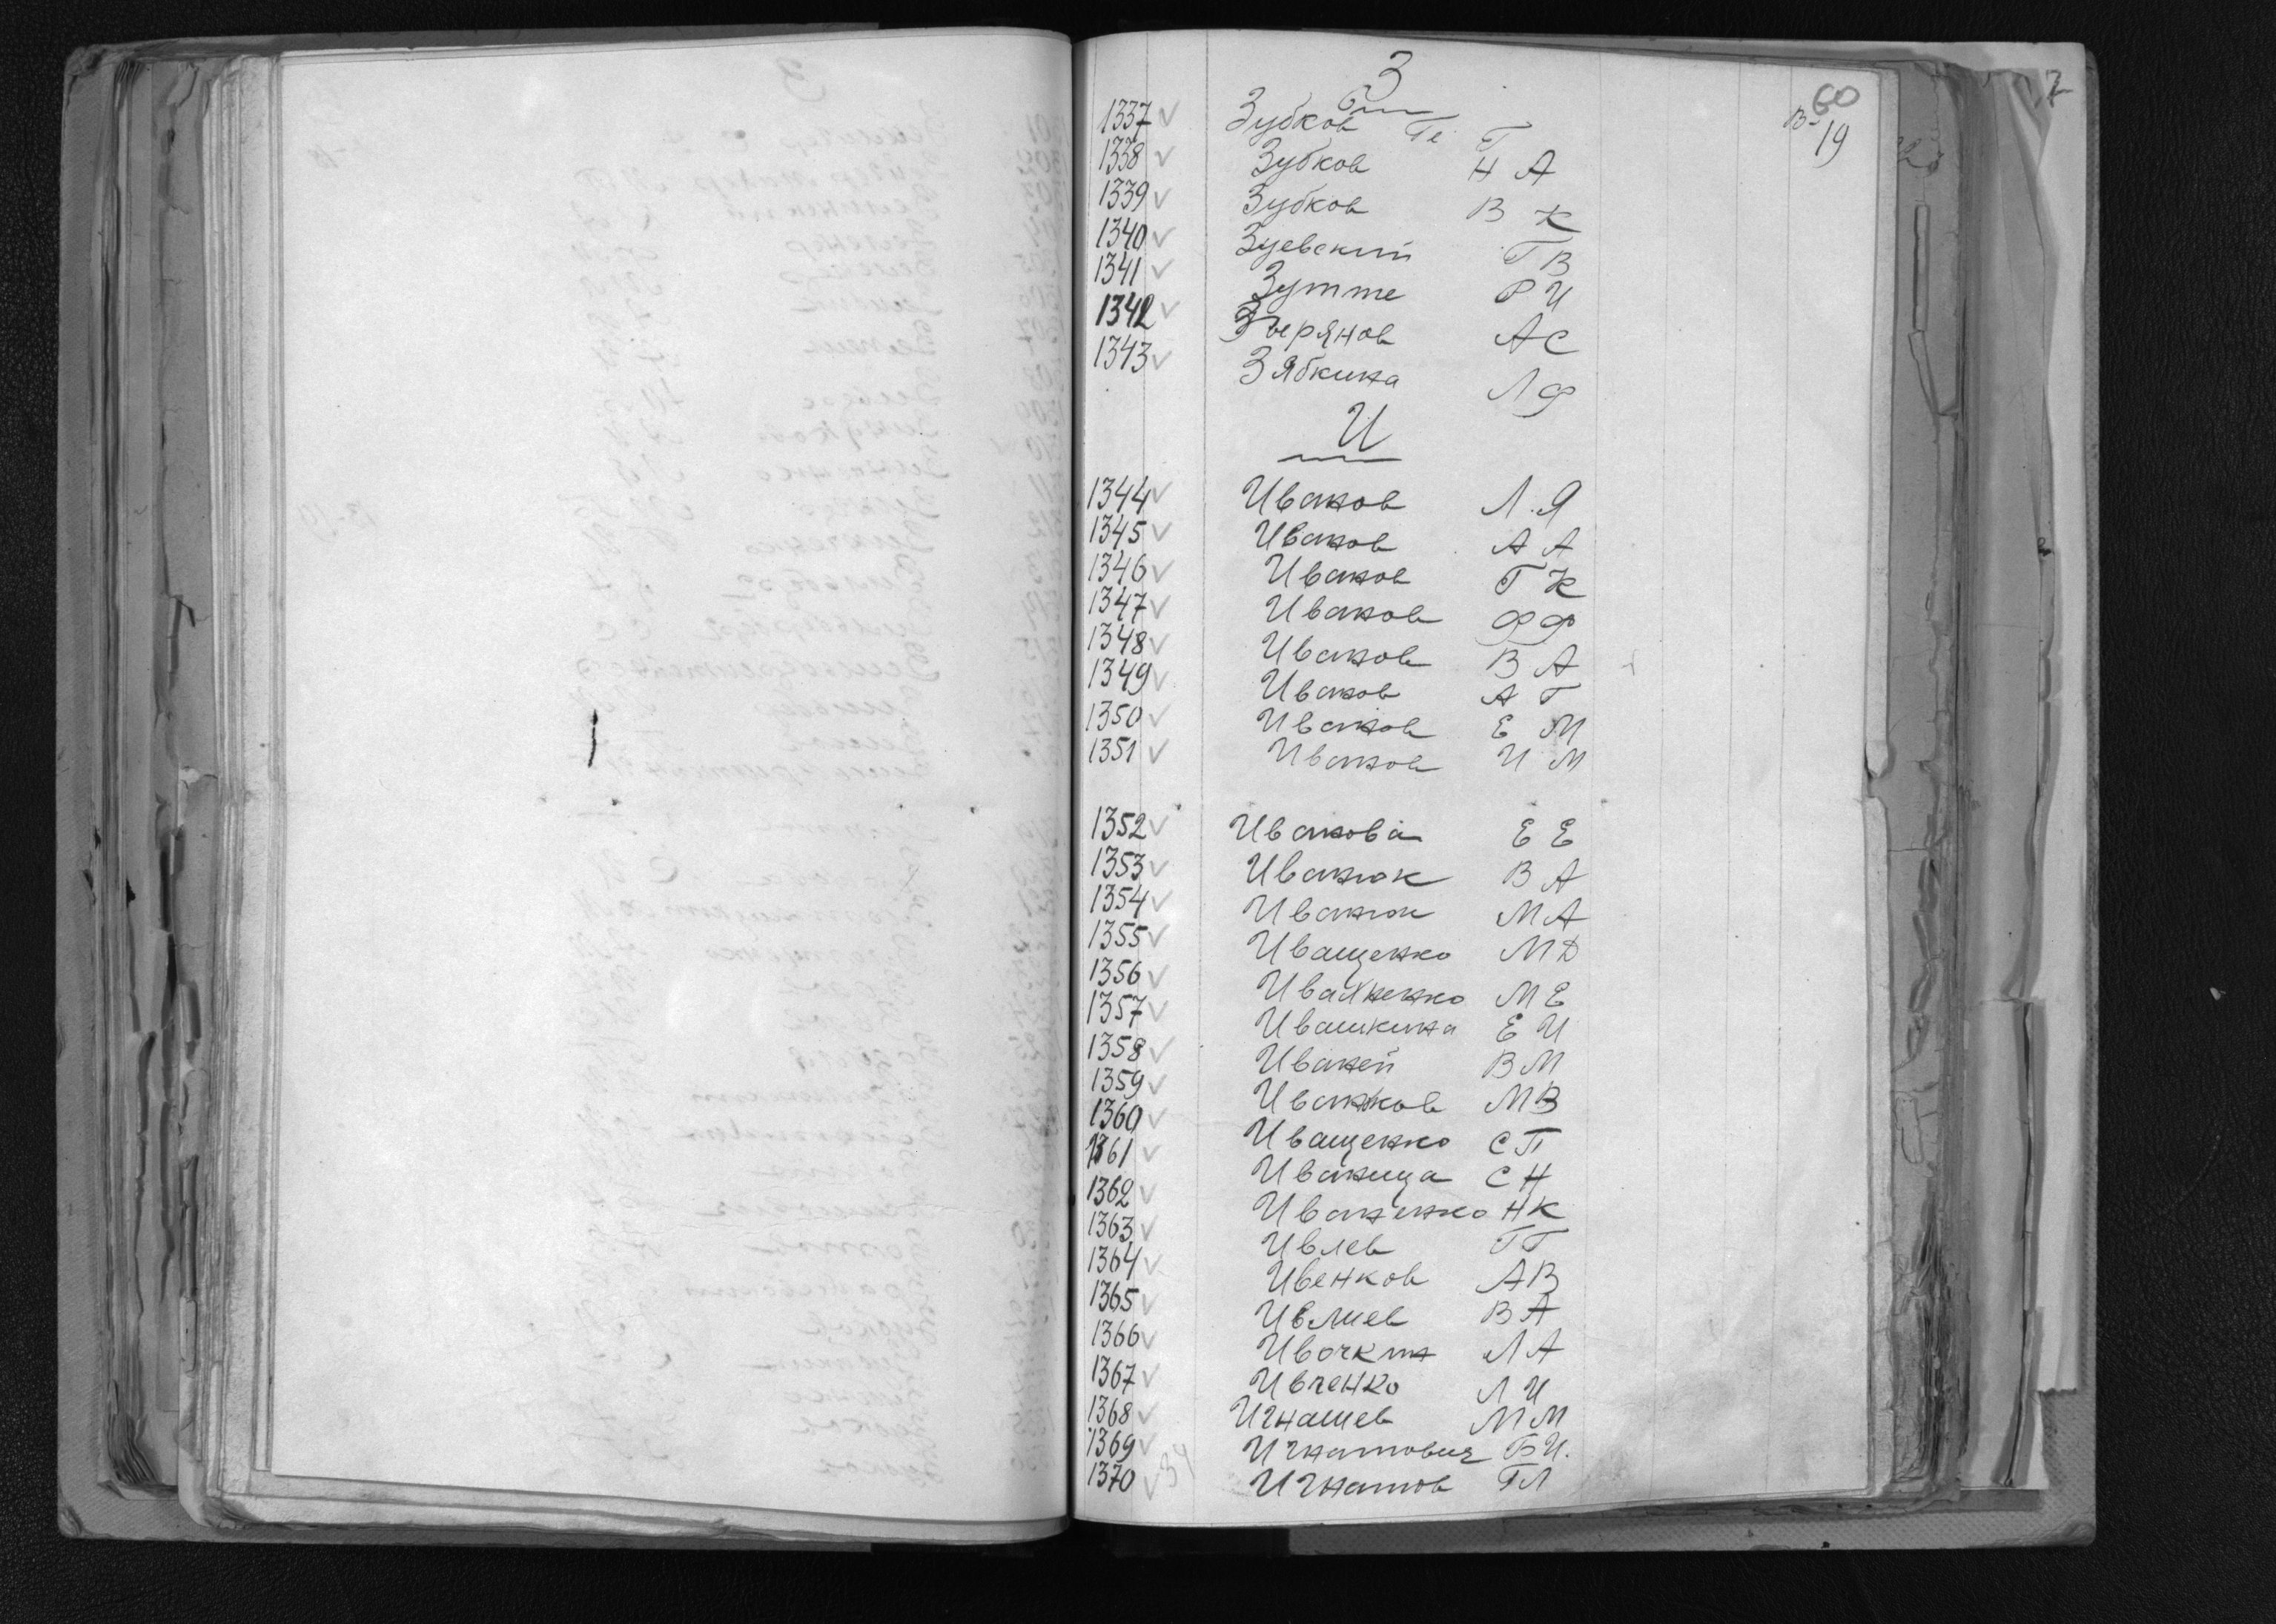 З
60
В-19
1337 Зубков Г
1338 Зубков Н А
1339 Зубков В К
1340 Зуевский Г В
1341 Зутте Р И
1342 Зверянов А С
1343 Зябкина Л Ф
И
1344 Иванов Л.Я
1345 Иванов А А
1346 Иванов Г К
1347 Иванов Ф Ф
1348 Иванов В А
1349 Иванов А Г
1350 Иванов Е М
1351 Иванов И М
1352 Иванова Е Е
1353 Иванюк В А
1354 Иванюк М А
1355 Иващенко М Д
1356 М Е
1357 Ивашкина Е И
1358 Иваней В М
1359 Иванков М В
1360 Иващенко С П
1361 Иваница С Н
1362 Иваненко Н К
1363 Ивлев Г Г
1364 Ивенков А В
1365 Ивлиев В А
1366 Ивочкин Л А
1367 Ивченко Л И
1368 Игнашев М М
1369 Игнатович Б И.
1370 34 Игнатов Г Л